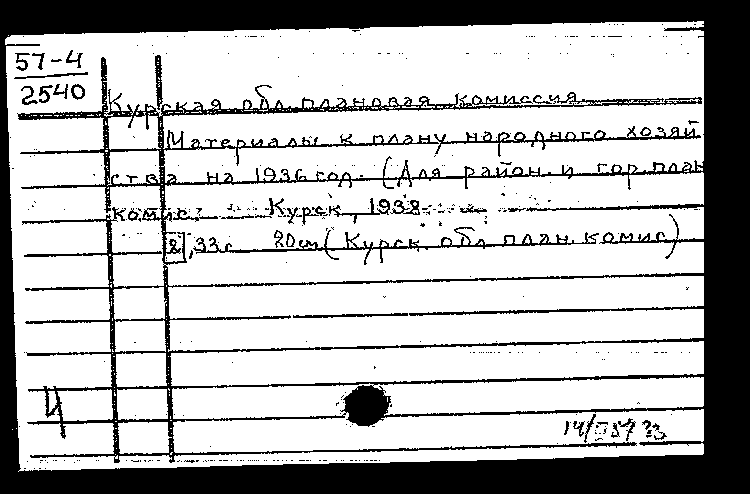 57-4
2540
Курская обл. плановая комиссия
Материалы к плану народного хозяй
ства на 1936 год. (Для район. и гор. план
комис. Курск, 1938
[2], 33 с 20 см (Курск. обл. план. комис)
Ч
14/III 57